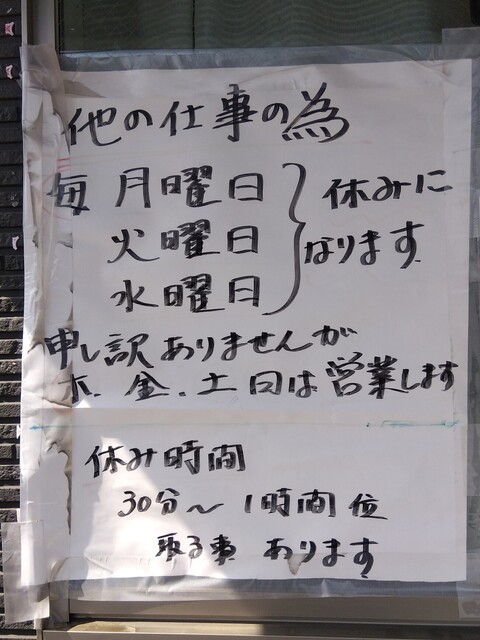 他の仕事の為
毎 月曜日 休みに
火曜日 なります
水曜日
申し訳ありませんが
木.金.土日は営業します
休み時間
30分〜1時間位
取る事 あります